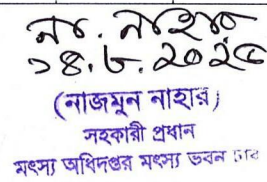 না. নাহার
১৪.৮.২০২৫
(নাজমুন নাহার)
সহকারী প্রধান
মৎস্য অধিদপ্তর মৎস্য ভবন